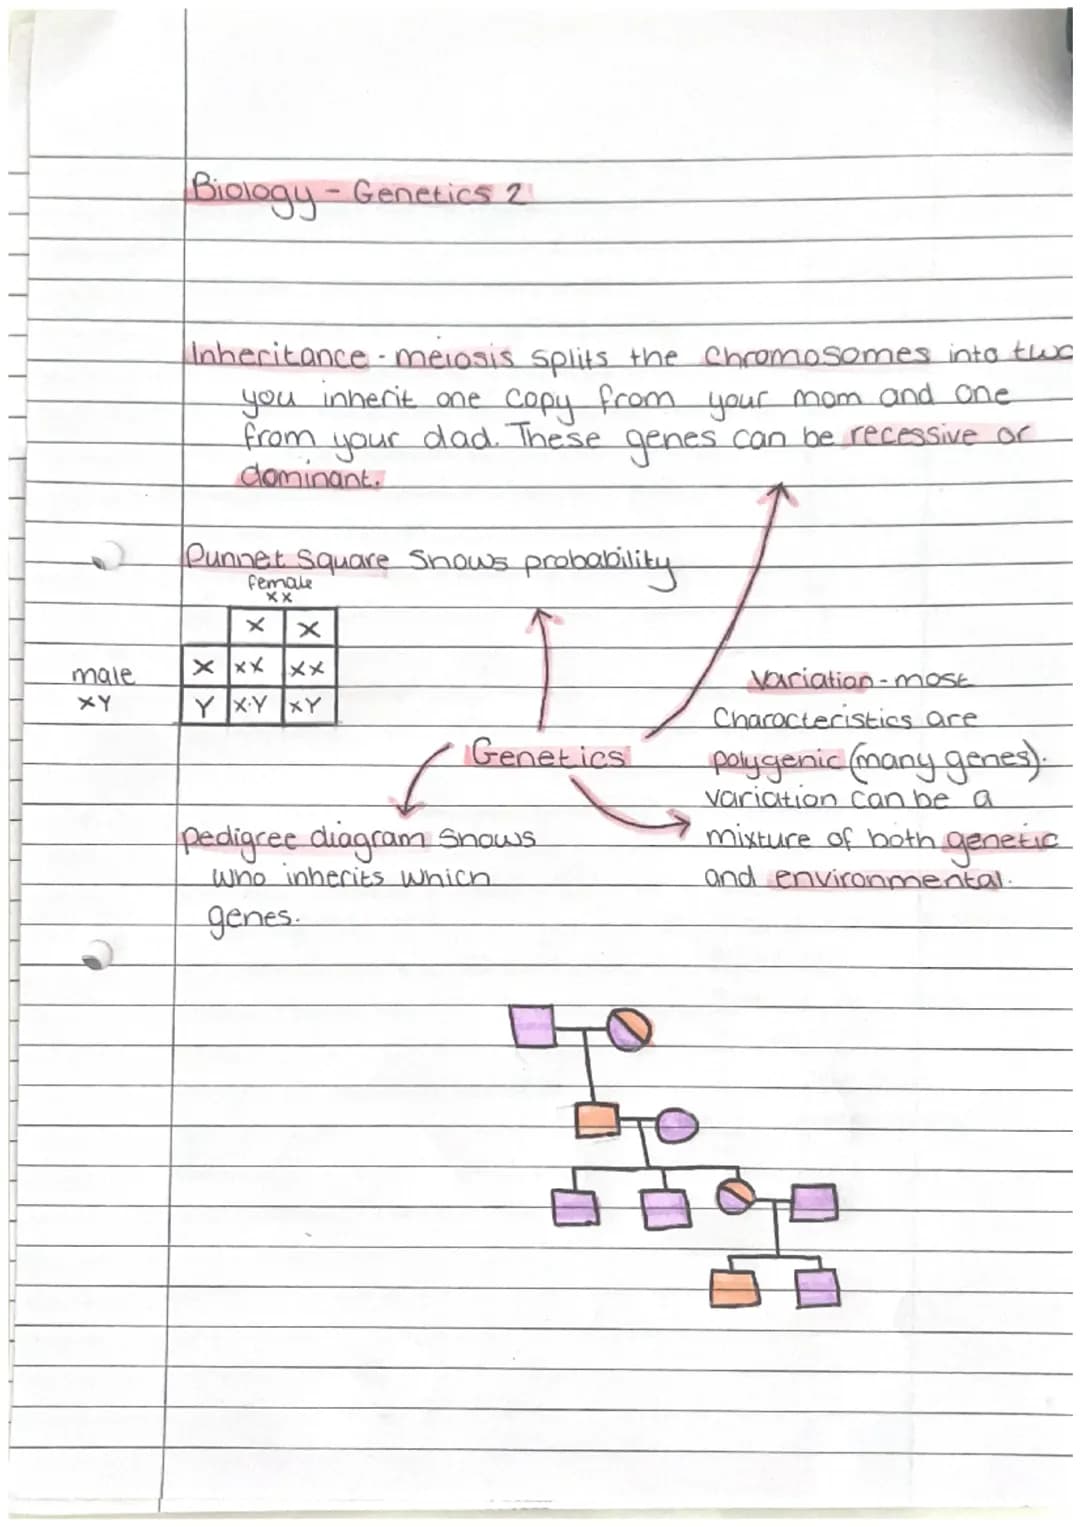 Biology - Genetics 2
Inheritance - meiosis splits the Chromosomes into two
you inherit one copy from your mom and one
from your dad. These genes can be recessive or
dominant.
Punnet Square Shows probability
female
XX
X X
male X XX XX
XY Y X·Y XY
Variation - most
Characteristics are
Genetics polygenic (many genes).
variation can be a
pedigree diagram Shows mixture of both genetic
who inherits which and environmental.
genes.